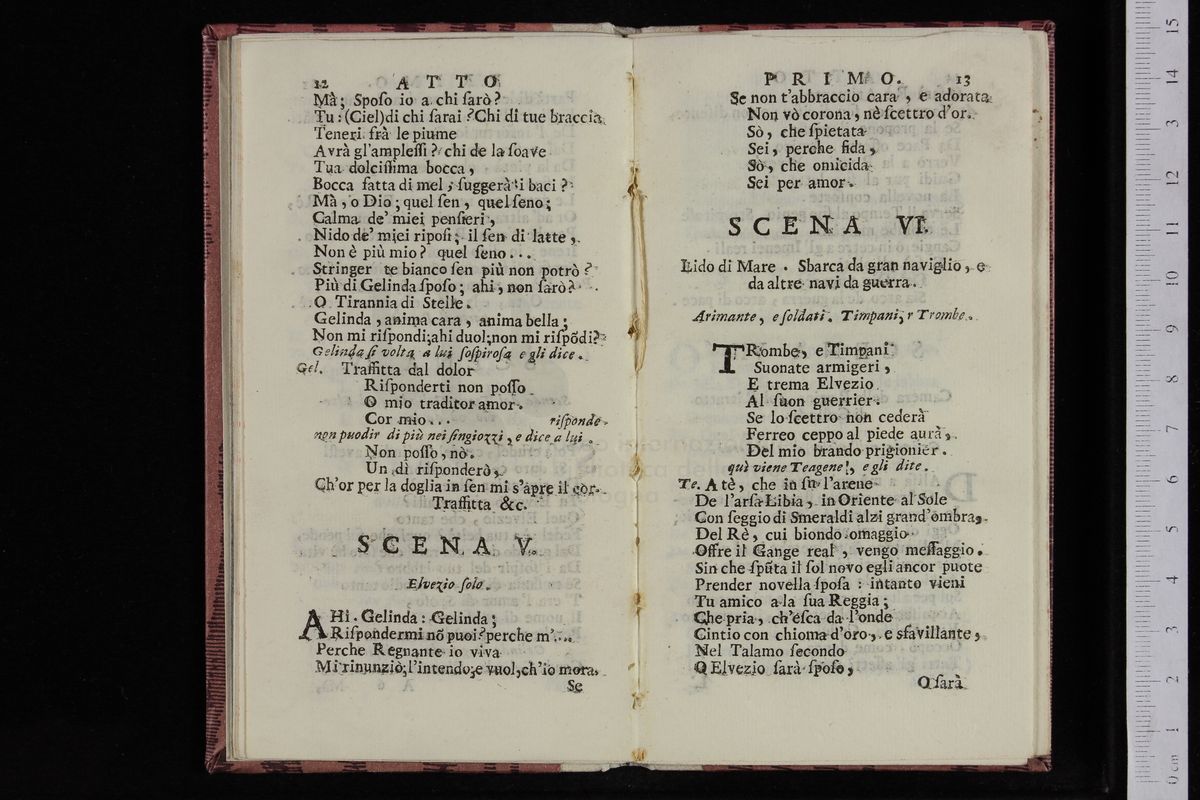 12 ATTO
Mà; Spoſo io a chi ſarò?
Tu: (Ciel) di chi ſarai? Chi di tue braccia
Teneri frà le piume
Avrà gl'ampleſſi? chi de la ſoave
Tua dolciſſima bocca,
Bocca fatta di mel, ſuggerà i baci?
Mà, o Dio; quel ſen, quel ſeno;
Calma de' miei penſieri,
Nido de' miei ripoſi; il ſen di latte,
Non è più mio? quel ſeno...
Stringer te bianco ſen più non potrò?
Più di Gelinda ſpoſo; ahi, non ſarò?
O Tirannia di Stelle.
Gelinda, anima cara, anima bella;
Non mi riſpondi; ahi duol; non mi riſpõdi?
Gelinda ſi volta a lui ſoſpiroſa e gli dice.
Gel. Traffitta dal dolor
Riſponderti non poſſo
O mio traditor amor.
Cor mio... riſponde
non puo dir di più nei ſingiozzi, e dice a lui.
Non poſſo, nò.
Un dì riſponderò,
Ch'or per la doglia in ſen mi s'apre il cor.
Traffitta &c.
SCENA V.
Elvezio ſolo.
AHi Gelinda: Gelinda;
Riſpondermi nõ puoi? perche m'....
Perche Regnante io viva
Mi rinunziò; l'intendo; e vuol, ch'io mora,
Se
PRIMO. 13
Se non t'abbraccio cara, e adorata
Non vò corona, nè ſcettro d'or.
Sò, che ſpietata
Sei, perche fida,
Sò, che omicida
Sei per amor.
SCENA VI.
Lido di Mare. Sbarca da gran naviglio, e
da altre navi da guerra.
Arimante, e ſoldati. Timpani, r Trombe.
TRombe, e Timpani
Suonate armigeri,
E trema Elvezio
Al ſuon guerrier.
Se lo ſcettro non cederà
Ferreo ceppo al piede aurà,
Del mio brando prigionier.
quì viene Teagene, e gli dite.
Te. A tè, che in ſu l'arene
De l'arſa Libia, in Oriente al Sole
Con ſeggio di Smeraldi alzi grand'ombra,
Del Rè, cui biondo omaggio
Offre il Gange real, vengo meſſaggio.
Sin che ſpũta il ſol novo egli ancor puote
Prender novella ſpoſa: intanto vieni
Tu amico a la ſua Reggia;
Che pria, ch'eſca da l'onde
Cintio con chioma d'oro, e sfavillante,
Nel Talamo ſecondo
O Elvezio ſarà ſpoſo,
O ſarà
0 cm 1 2 3 4 5 6 7 8 9 10 11 12 13 14 15